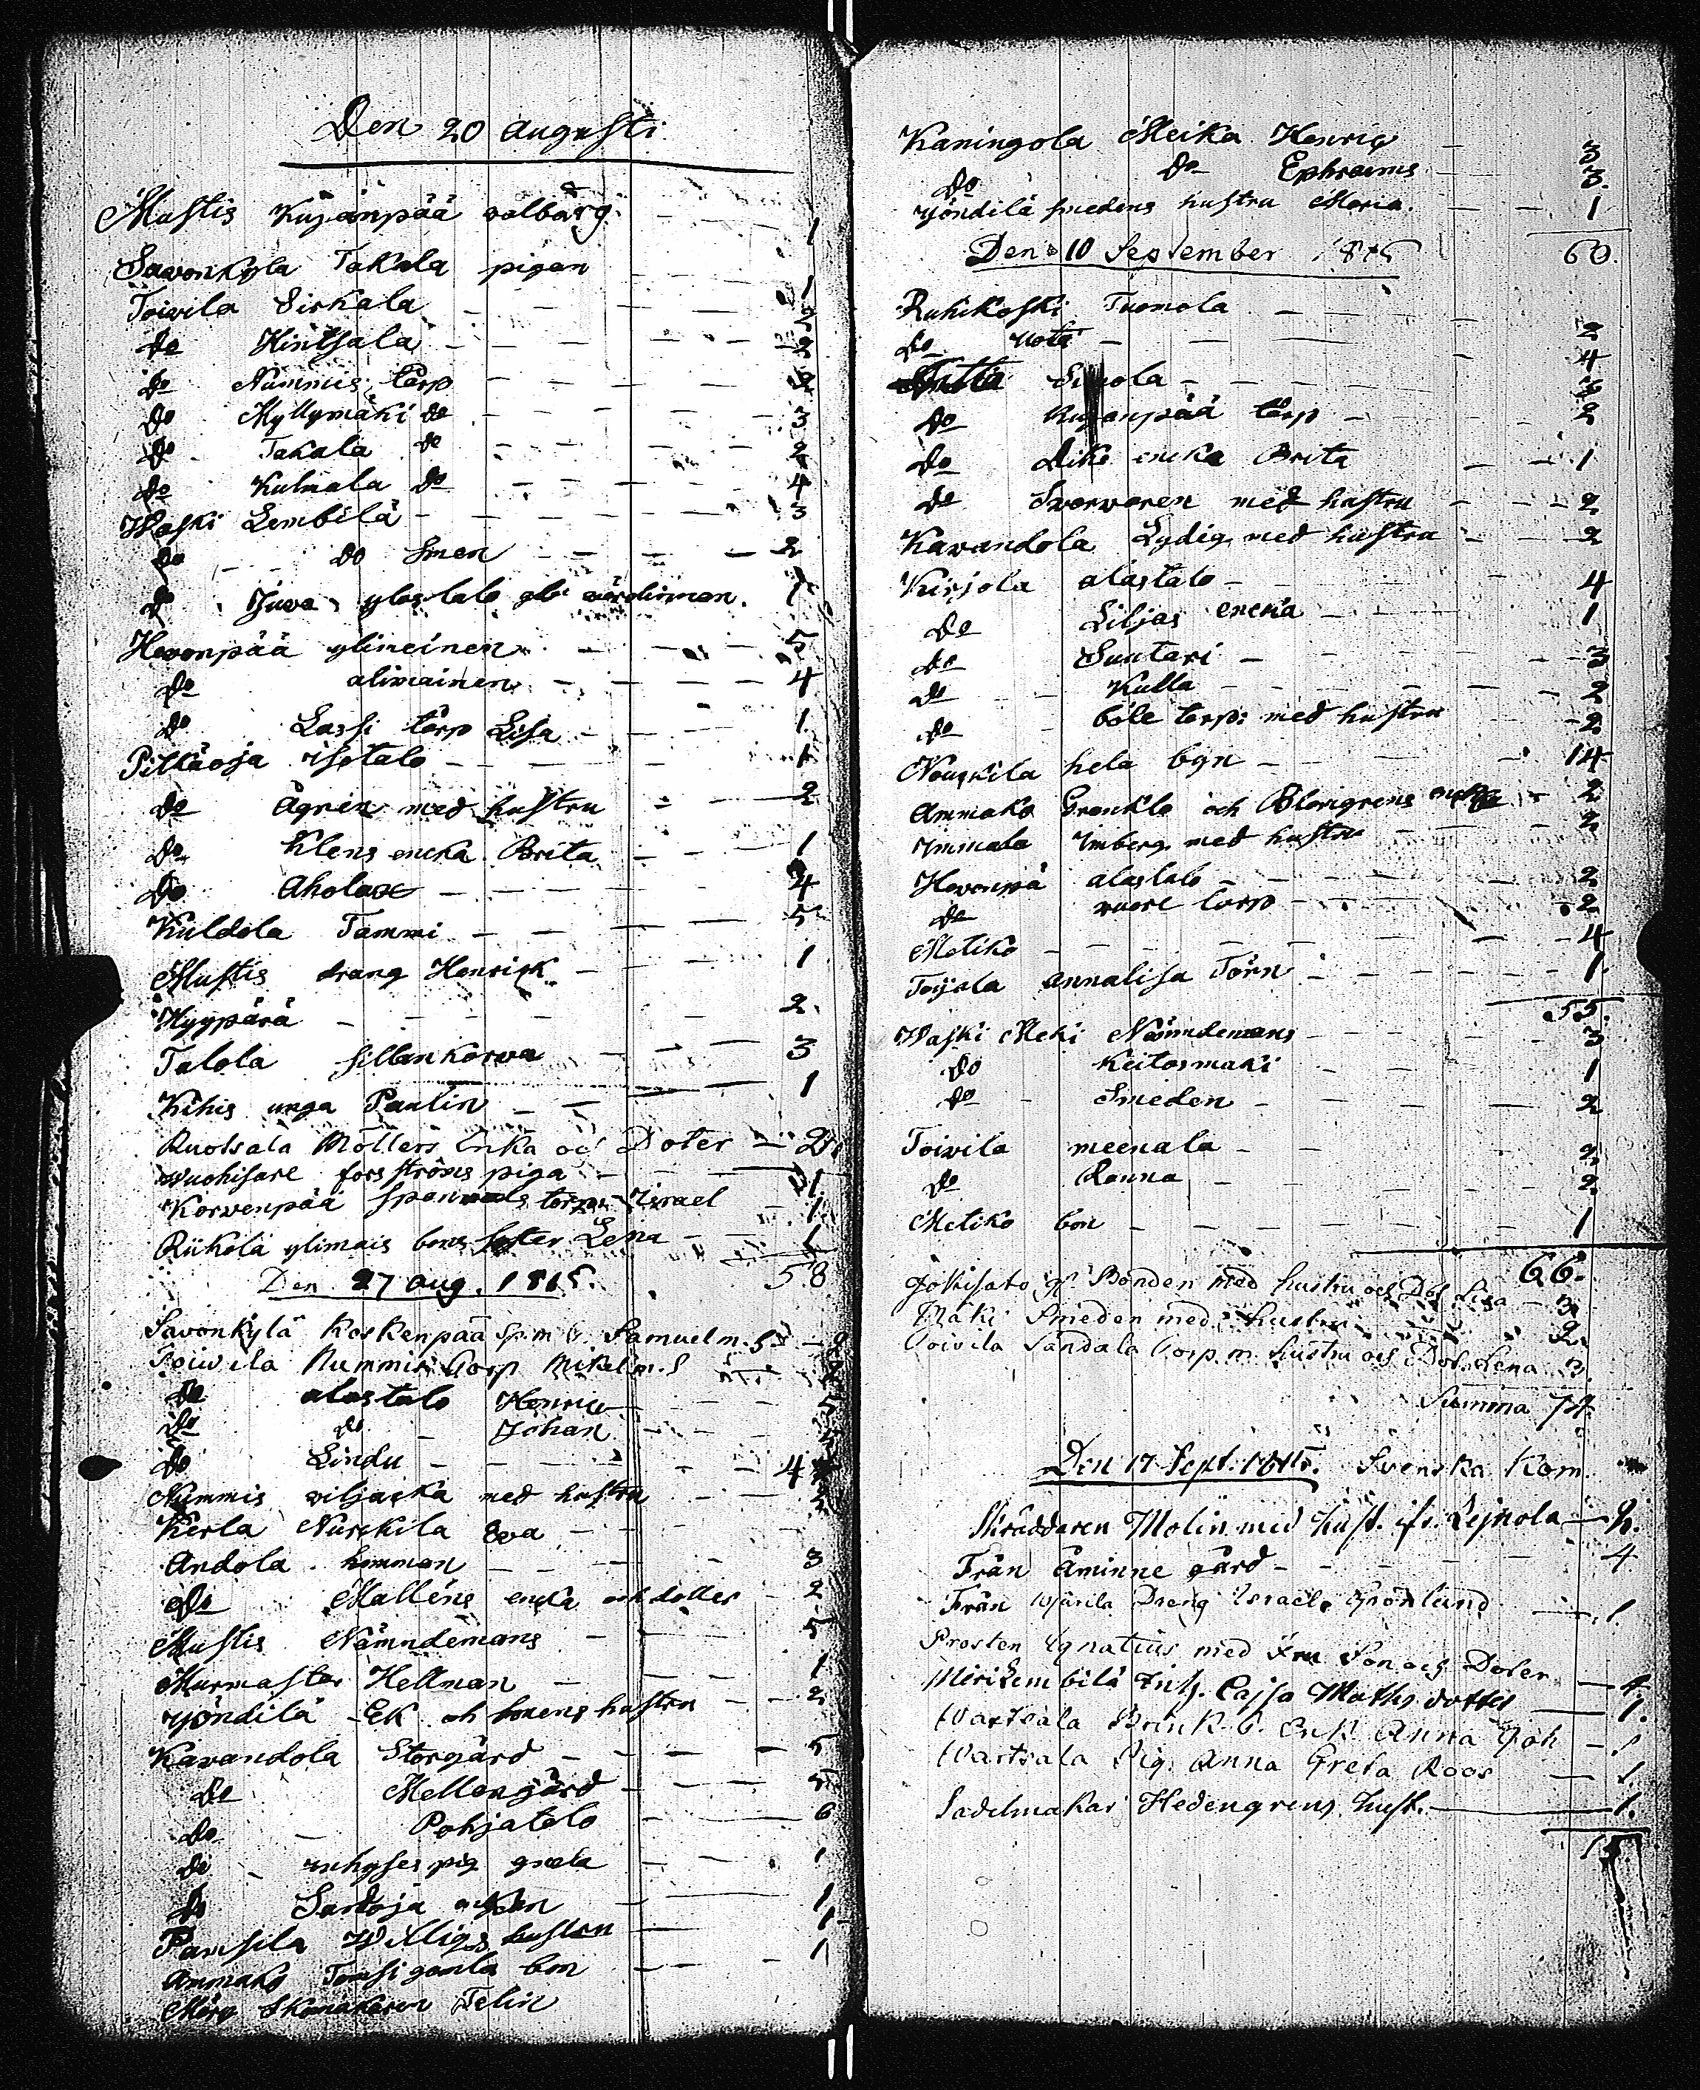 Den 20 augusti
Mustis Kujanpää valbårg 1
Savonkyla Takala pigan 1
Toivila Sirkala 2
do Hintsala 2
do Nummis torp 2
do Myllymäki do 3
do Takala do 2
do Kulmala do 4
Waski Lembilä 3
do do Smen 2
do Juva ylostalo 1
Hevonpää ylineinen 5
do alimainen 4
do Lassi torp Lisa 1
Piltäoja isotalo 1
do Ågren med hustru 2
do Klens encka Brita 1
do Ahola 4
Kuldola Tammi 5
Mustis drang Henrick 1
Hyypärä 2.
Talola sillankorva 3
Kihis unga Paulin 1
Ruotsala Möllers Enka oc Doter 2
Wuohisare forsströms piga 1
Korvenpää torp Israel 1
Riikola ylimais bons Syster Lena 1
58
Den 27 aug. 1815.
Savonkylä Koskenpää Samuel m. 2
Toivila Nummis torp Mikel m. 2
do alostalo Henric 5
do do Johan 5
do Lindu 4
Nummis viljacka med hustru 2
Kerla Nurckila Eva
Andola homman 3
do Malléns encka och dotter 2
Mustis Nämndemans 5
Murmastar Hellman 1
Yöndilä Ek och bonens hustru 2
Kavandola Storgård 5
do Mellengård 5
do Pohjatalo 6
do pig greta 1
do Sartoja 1
Pansila Williges hustru 1
Ammako gamla bon 1
Telin
Kaningola Meika Henric 3
do do Ephraims 3.
Yöndilä smedens hustru Maria. 1
60.
Den 10 September 1815
Ruhikoski Tuomola 2
do Uota 4
Simola 3
do Kujanpää torp 2
do Dike encka Brita 1
do Svarvaren med hustru 2
Kavandola Lydig med hustru 2
Kirjola alastalo 4
do Liljas encka 1
do Suutari 3
do Kulla 2
do böle torp: med hustru 2
Nouskila hela byn 14
Ammako Grankla och Blomgrens encka 2
Immala Imberg med hustru 2
Hevonpä alastalo 2
do vuore torp 2
Metiko 4
Toijala annalisa Törn 1.
55.
Waski Meki Nämndemans 3
do Keitosmaki 1
do Smeden 2
Toivila meenala 2
do Ranna 2.
Metiko bon 1
66.
Jokisato Bonden med hustru och Dot Lisa 3
Mäki Smeden med hustru 2.
Toivila Sandala torp m hustru och Dot. Lena 3.
Summa 74.
Den 17 Sept. 1815. Svenska Kom
Skräddaren Molin med hust. fr. Lejnola 2.
Från Åminne gård 4
Från Wjärila Dreng Israel Grönlund 1
Prosten Ignatius med Fru Son och Doter 4.
Merikembilä Inh. Cajsa Mathsdotter 1.
Wartsala Brink b. Enk. Anna Joh 1
Wartsala Pig. Anna Greta Roos 1.
Sadelmakar Hedengrens hust. 1.
15.